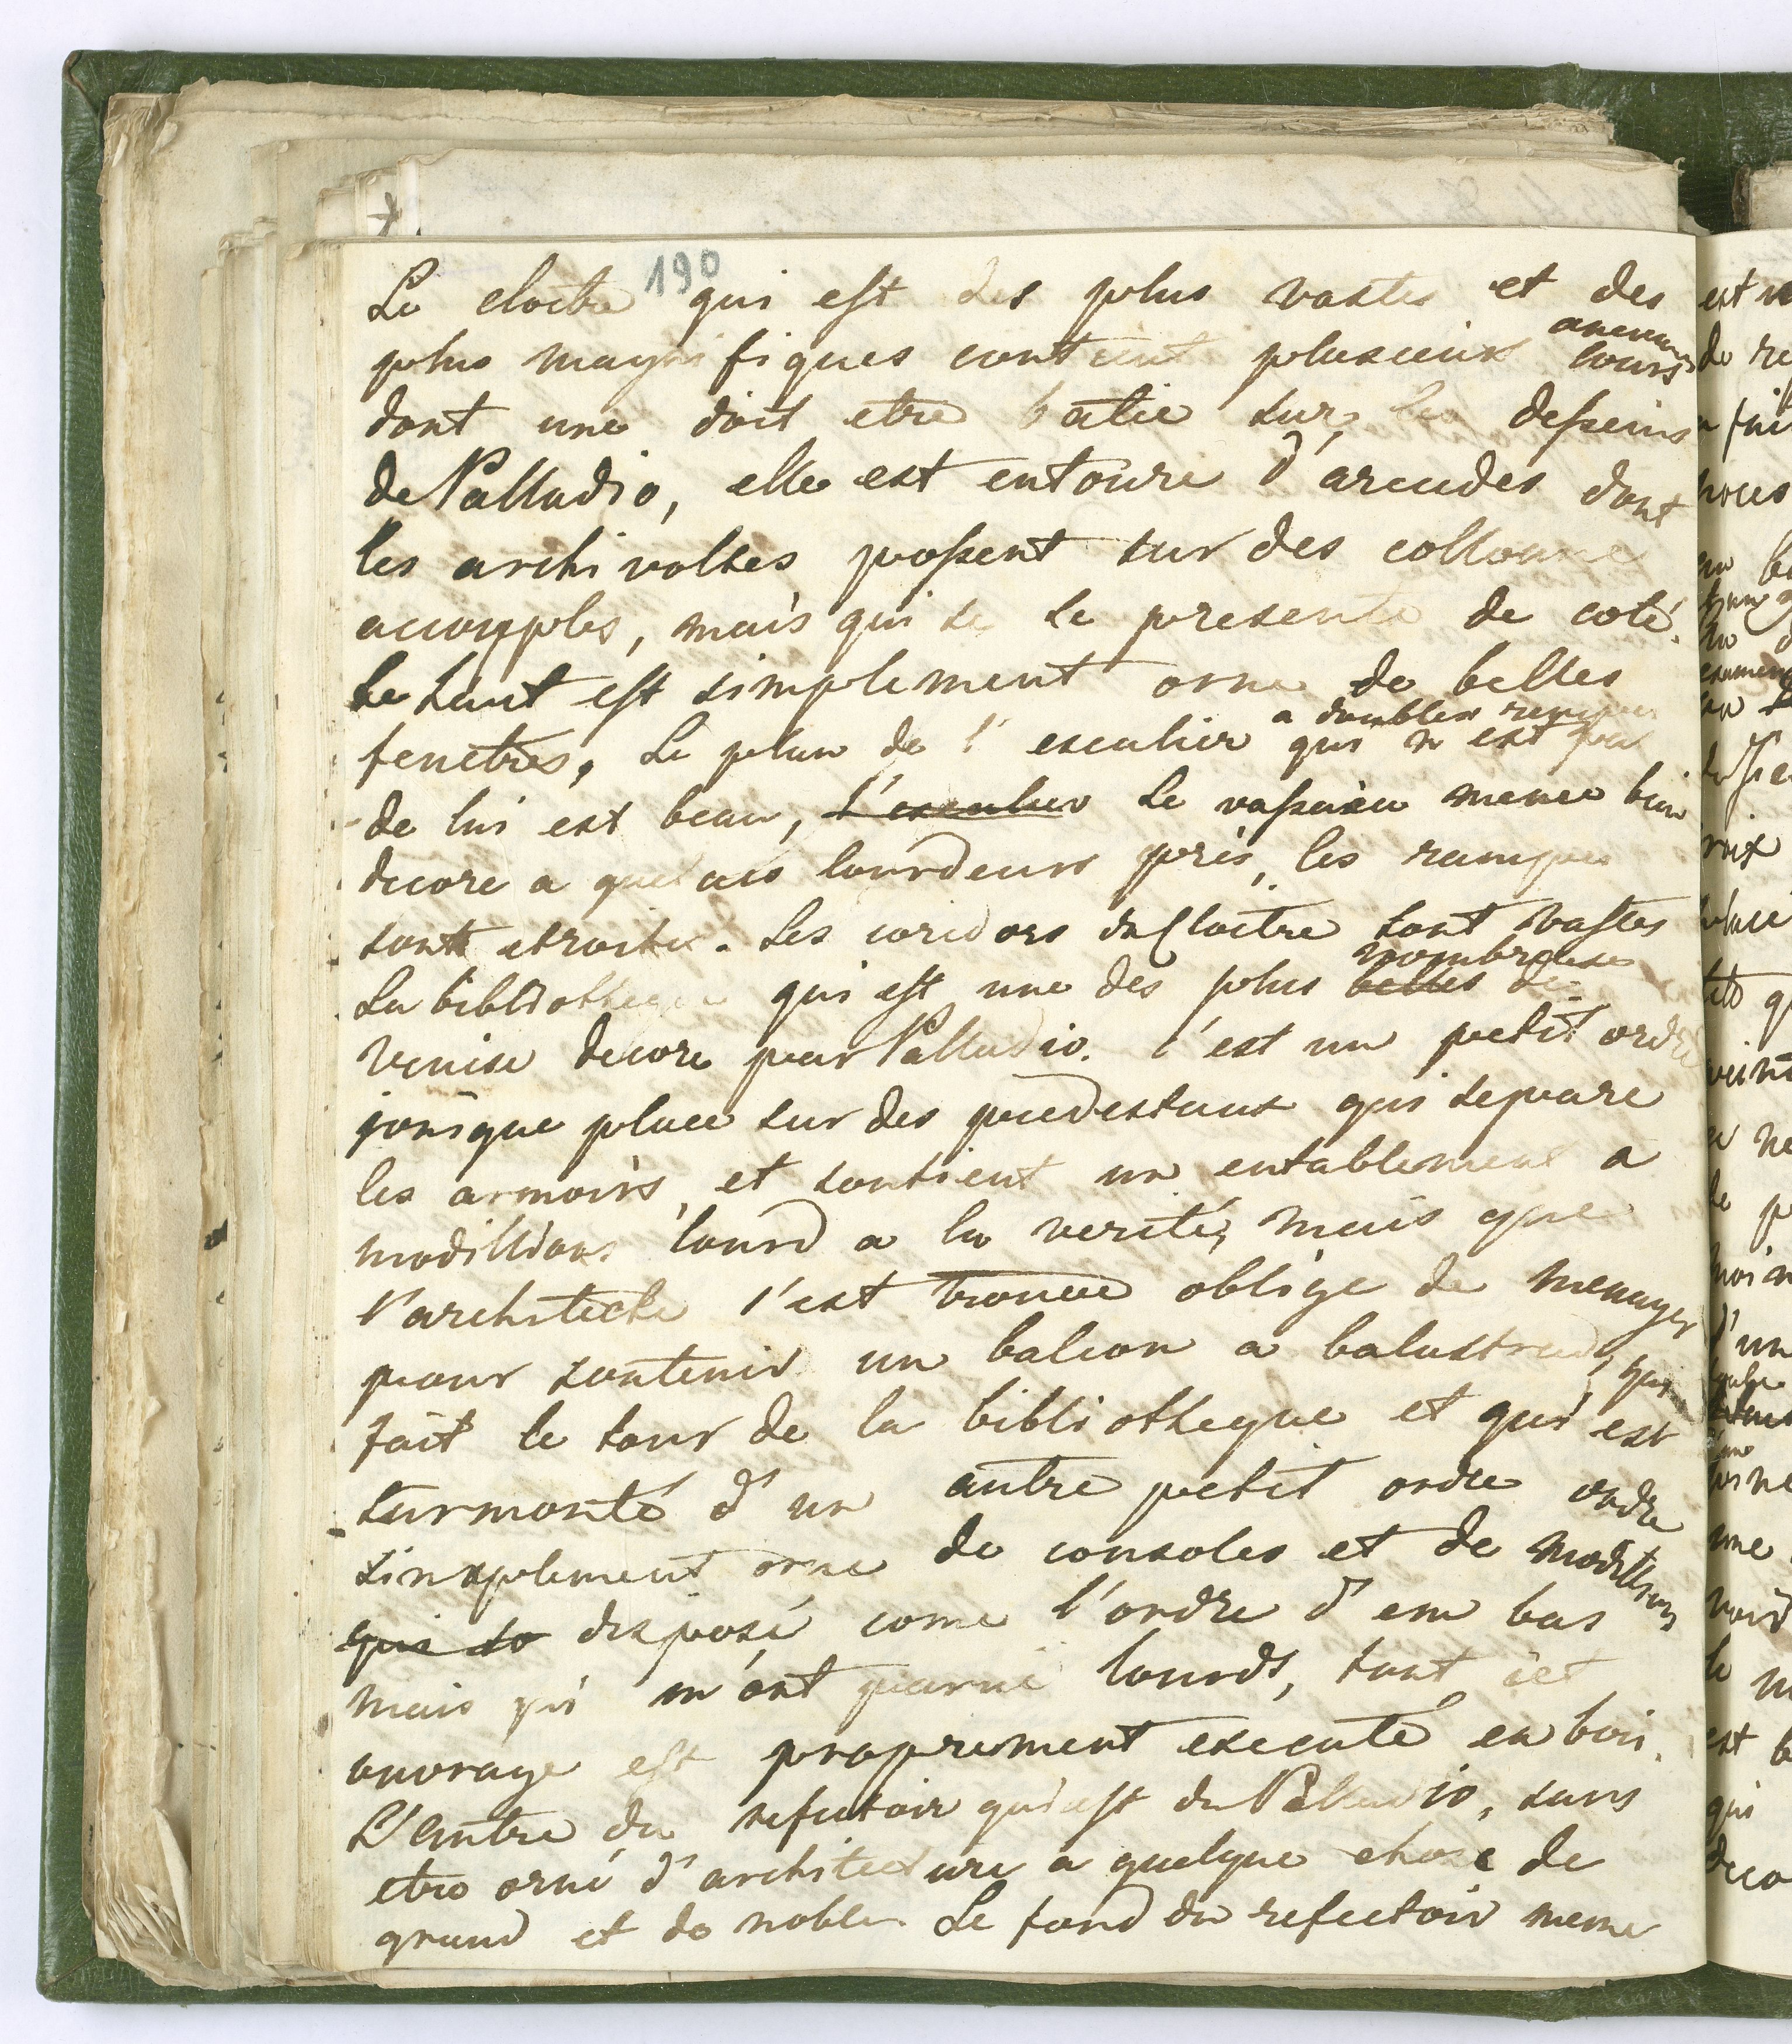 190
Le cloitre qui est des plus vastes et des
plus magnifiques contient plusieurs cours
dont une doit etre batie sur les desseins
de Palladio, elle est entouré d'arcades dont
les archivoltes possent sur des collonne
accouples, mais qui se presente de coté.
Le haut est simplement orne de belles
a doubles rampes
fenetres, Le plan de l'escalier qui n'est pas
de lui est beau, l'escalier Le vaisseau meme bien
decore a quelques lourdeurs près, les rampes
sont etroites. Les coridors du Cloitre sont vastes
nombreuses
La bibliotheque qui est une des plus belles de
Venise decore par Palladio. c'est un petit ordre
jonique place sur des piedestaux qui separe
les armoirs, et soutient un entablement a
modillions lourd a la verité, mais que
l'architecte s'est trouve oblige de menager
pour soutenir un balcon a balustrade, qui
fait le tour de la bibliotheque et qui est
surmonté d'un autre petit ordre ordre
simplement orne de consoles et de modillions
qui so disposé come l'ordre d'em bas
mais qui m'ont parue lourds, tout cet
ouvrage est proprement executé en bois.
L'entre du refectoir qui est du Palladio, sans
etre orné d'architecture a quelque chose de
grand et de noble. Le fond du refectoir meme